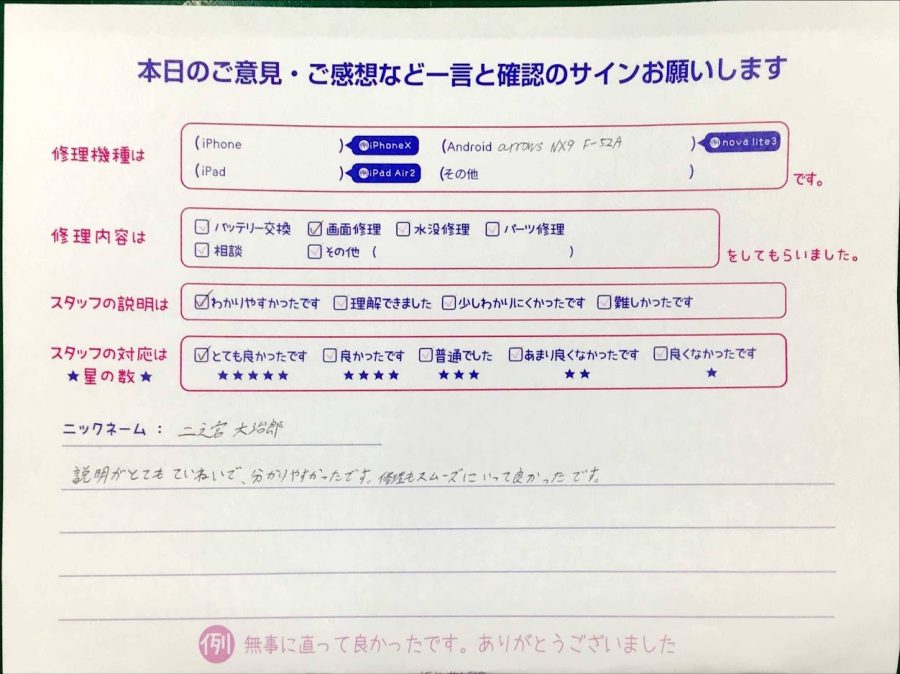 本日のご意見・ご感想など一言と確認のサインお願いします
修理機種は (iPhone ) 例iPhoneX (Android arrows NX9 F-52A ) 例nova lite3
(iPad ) 例iPad Air2 (その他 ) です。
修理内容は バッテリー交換 画面修理 水没修理 パーツ修理
相談 その他 ( ) をしてもらいました。
スタッフの説明は わかりやすかったです 理解できました 少しわかりにくかったです 難しかったです
スタッフの対応は とても良かったです 良かったです 普通でした あまり良くなかったです 良くなかったです
★星の数★ ★★★★★ ★★★★ ★★★ ★★ ★
ニックネーム： 二之宮 大治郎
説明がとてもていねいで、分かりやすかったです。修理もスムーズにいって良かったです。
例 無事に直って良かったです。ありがとうございました